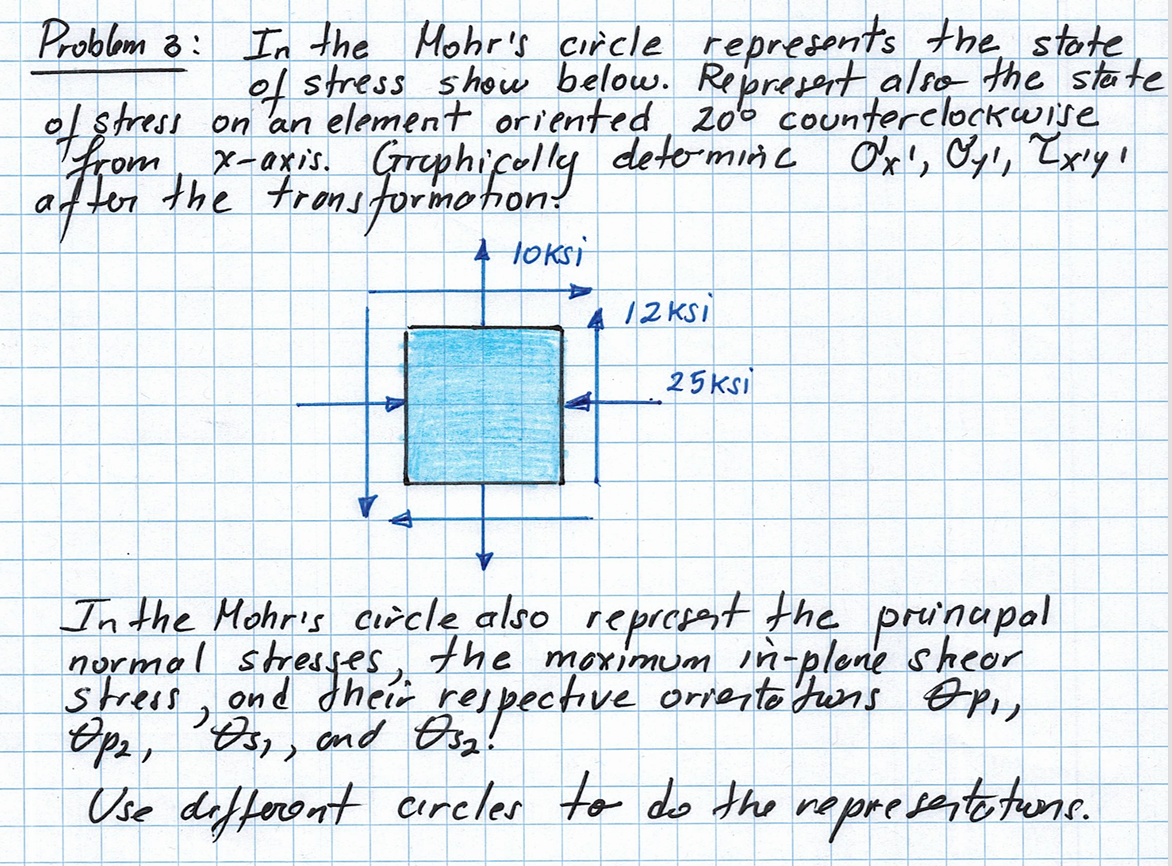 Problem 3: In the Mohr's circle represents the state
of stress show below. Represent also the state
of stress on an element oriented 20° counterclockwise
from x-axis. Graphically determine σx', σy', τx'y'
after the transformation.
10ksi
12ksi
25ksi
In the Mohr's circle also represent the prinapal
normal stresses, the maximum in-plane shear
stress, and their respective orientations θp1,
θp2, θs1, and θs2!
Use different circles to do the representations.